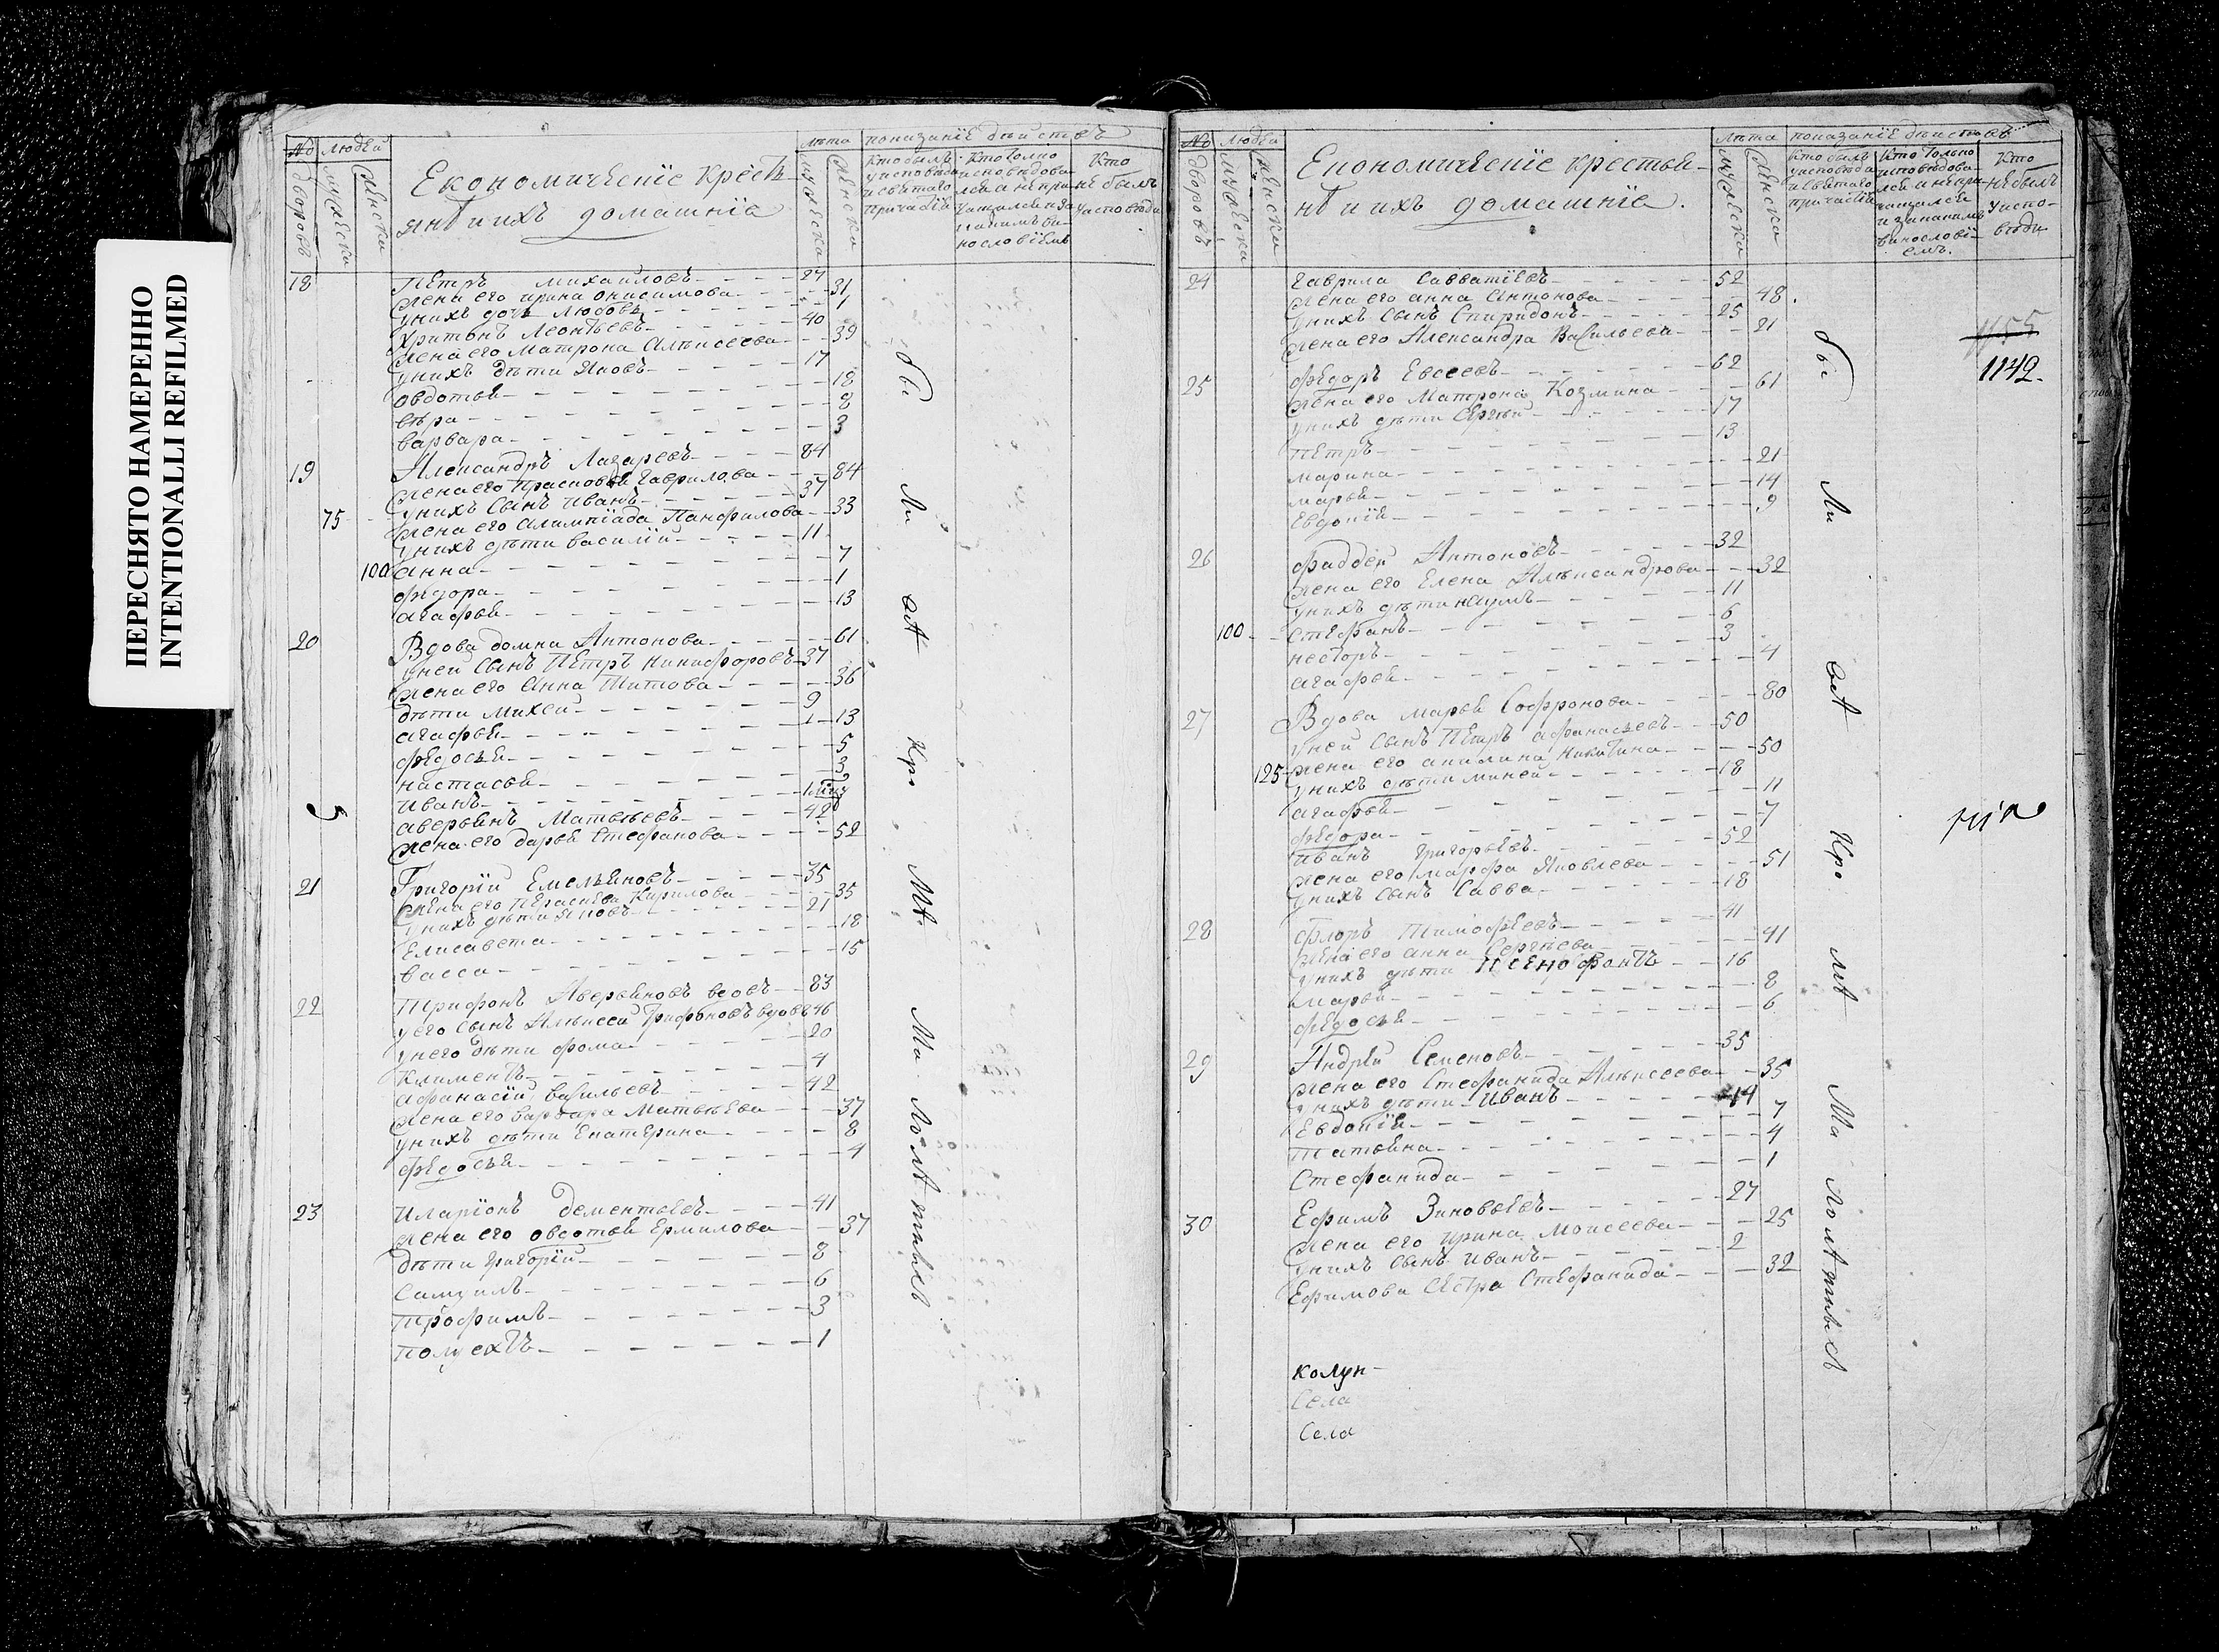 ПЕРЕСНЯТО НАМЕРЕННО
INTENTIONALLI REFILMED
№ людей лѣта показанїе дѣиствъ
дворовъ мужеска женска
Економическїе крестьянѣ и ихъ домашнїе
мужеска женска
кто былъ у исповѣди и святаго причастїя
кто толко исповѣдовался а не причащался и за какимъ винословїемъ
кто не былъ у исповѣди
18 Петръ Михаиловъ 27
жена его ирина онисимова 31
у нихъ дочь любовь 1
Харитонъ Леонтьевъ 40
жена его Матрона Алѣксеева 39
у нихъ дѣти Яковъ 17
овдотья 18
вѣра 8
варвара 3
19 Александръ Лазаревъ 84
жена его Прасковья Гаврилова 84
у нихъ сынъ иванъ 37
75 жена его Алимпїада Панфилова 33
у нихъ дѣти василїи 11
100 анна 7
федора 1
агафья 13
20 Вдова домна Антонова 61
у ней сынъ Петръ Никифоровъ 37
жена его Анна Титова 36
дѣти михеи 9
агафья 13
федосья 5
настасья 3
иванъ 1
аверьянъ Матвѣевъ 42
жена его дарья Стефанова 52
21 Григорїи Емельяновъ 35
жена его Кирилова 35
у нихъ дѣти яковъ 21
Елисавета 18
васса 15
22 Трифонъ Аверьяновъ вдовъ 83
у его сынъ Алѣксеи Трифоновъ вдовъ 46
у него дѣти фома 20
климентъ 4
афанасїи васильевъ 42
жена его варвара Матвѣева 37
у нихъ дѣти Екатерина 8
федосья 4
23 иларїонъ дементьевъ 41
жена его овдотья Ермилова 37
дѣти григорїи 8
Самуилъ 6
трофимъ 3
полуехтъ 1
бы ли свѧ Кро мѧ Ма лолѧтныхъ
№ людей лѣта показанїе дѣиствъ
дворовъ мужеска женска
Економическїе крестьянѣ и ихъ домашнїе.
мужеска женска
кто былъ у исповѣди и святаго причастїя
кто только исповѣдовался и не причащался и за какимъ винословїемъ.
кто не былъ у исповѣди
24 Гаврила Савватїевъ 52
жена его анна Антонова 48.
у нихъ сынъ Спиридонъ 25
жена его Александра Васильева 21
1155
1142.
25 федоръ Евсеевъ 62
жена его Матрона Козмина 61
у нихъ дѣти Сергѣи 17
петръ 13
марина 21
марья 14
Евдокїя 9
26 фаддеи Антоновъ 32
жена его Елена Алѣксандрова 32
у нихъ дѣти наумъ 11
100 стефанъ 6
несторъ 3
агафья 4
27 Вдова марья Софронова 80
у ней сынъ Петръ афанасьевъ 50
125 жена его акилина никитина 50
у нихъ дѣти михеи 18
агафья 11
федора 7
иванъ григорьевъ 52
жена его марфа Яковлева 51
у нихъ сынъ Савва 18
28 флоръ Тимофѣевъ 41
жена его анна Сергѣева 41
у нихъ дѣти Ксенофонтъ 16
марья 8
федосья 6
29 Андреи Семеновъ 35
жена его Стефанида Алѣксеева 35
у нихъ дѣти иванъ 14
Евдокїя 7
татьяна 4
Стефанида 1
30 Ефимъ Зиновьевъ 27
жена его ирина Моисеева 25
у нихъ сынъ иванъ 2
Ефимова сестра Стефанида 32
колун
Села
Села
бы ли свѧ Кро мѧ Ма лолѧтныхъ